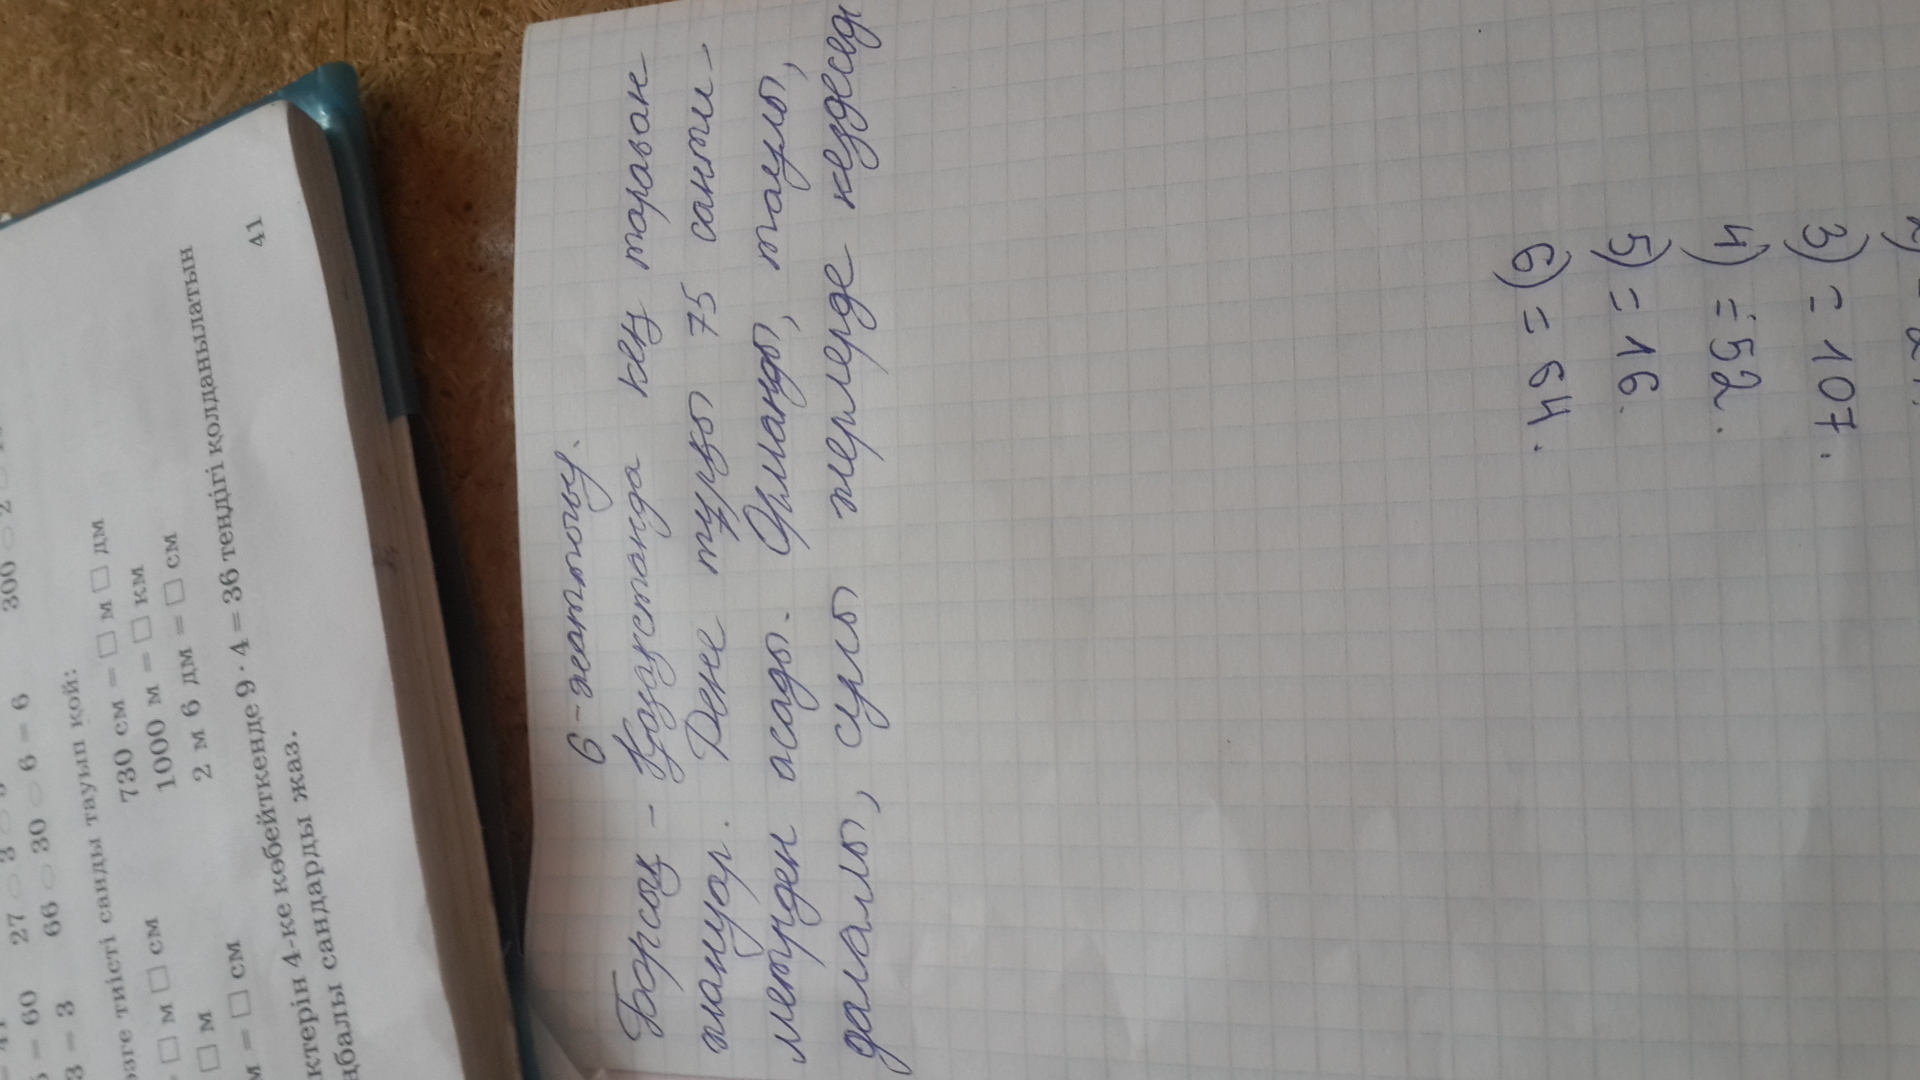 300 ○ 2
27 ○ 3 ○
= 60 66 ○ 30 ○ 6 = 6
3 = 3
тиісті санды тауып қой:
730 см = □ м □ дм
□ м □ см 1000 м = □ км
□ м 2 м 6 дм = □ см
м = □ см
ктерін 4-ке көбейткенде 9 · 4 = 36 теңдігі қолданылатын
ңбалы сандарды жаз.
41
6-жаттығу.
Борсық - Қазақстанда кең тараған
жануар. Дене тұрқы 75 санти-
метрден асады. Орманды, таулы,
далалы, сулы жерлерде кездесед
3) = 107.
4) = 52.
5) = 16.
6) = 64.